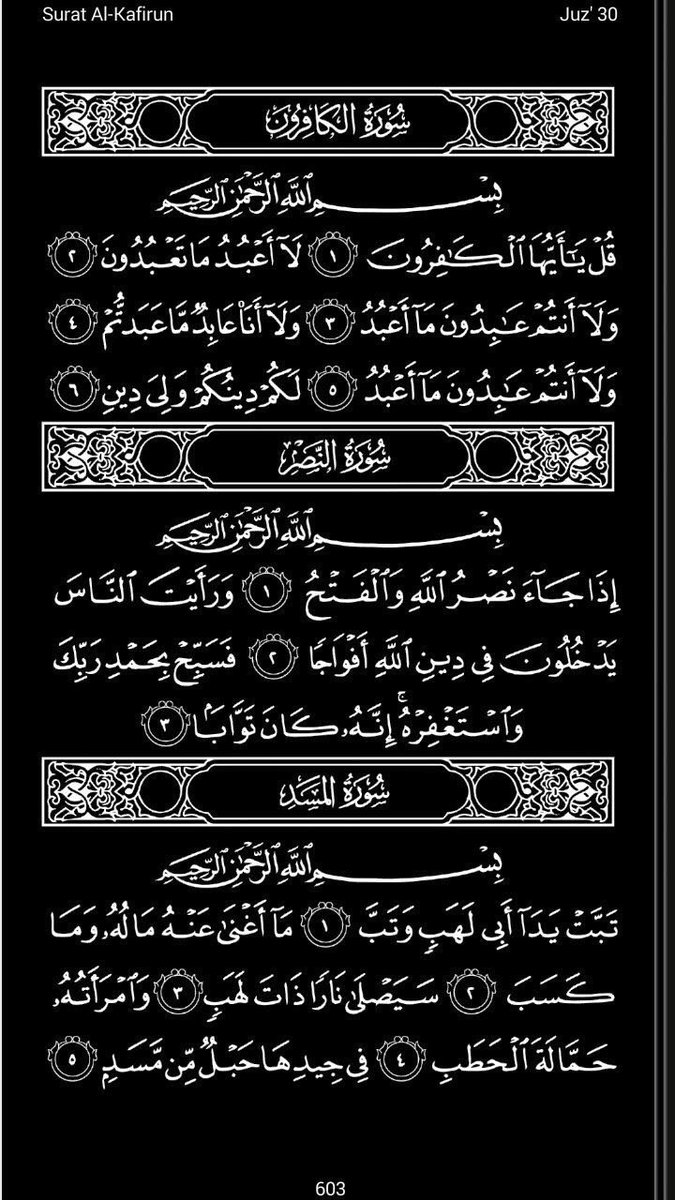 Surat Al-Kafirun
Juz' 30
سُورَةُ الكَافِرُونَ
بِسْمِ ٱللَّهِ ٱلرَّحْمَٰنِ ٱلرَّحِيمِ
قُلْ يَٰٓأَيُّهَا ٱلْكَٰفِرُونَ ١ لَآ أَعْبُدُ مَا تَعْبُدُونَ ٢
وَلَآ أَنتُمْ عَٰبِدُونَ مَآ أَعْبُدُ ٣ وَلَآ أَنَا۠ عَابِدٌ مَّا عَبَدتُّمْ ٤
وَلَآ أَنتُمْ عَٰبِدُونَ مَآ أَعْبُدُ ٥ لَكُمْ دِينُكُمْ وَلِىَ دِينِ ٦
سُورَةُ النَّصْرِ
بِسْمِ ٱللَّهِ ٱلرَّحْمَٰنِ ٱلرَّحِيمِ
إِذَا جَآءَ نَصْرُ ٱللَّهِ وَٱلْفَتْحُ ١ وَرَأَيْتَ ٱلنَّاسَ
يَدْخُلُونَ فِى دِينِ ٱللَّهِ أَفْوَاجًا ٢ فَسَبِّحْ بِحَمْدِ رَبِّكَ
وَٱسْتَغْفِرْهُ ۚ إِنَّهُۥ كَانَ تَوَّابًۢا ٣
سُورَةُ المَسَدِ
بِسْمِ ٱللَّهِ ٱلرَّحْمَٰنِ ٱلرَّحِيمِ
تَبَّتْ يَدَآ أَبِى لَهَبٍ وَتَبَّ ١ مَآ أَغْنَىٰ عَنْهُ مَالُهُۥ وَمَا
كَسَبَ ٢ سَيَصْلَىٰ نَارًا ذَاتَ لَهَبٍ ٣ وَٱمْرَأَتُهُۥ
حَمَّالَةَ ٱلْحَطَبِ ٤ فِى جِيدِهَا حَبْلٌ مِّن مَّسَدٍۭ ٥
603